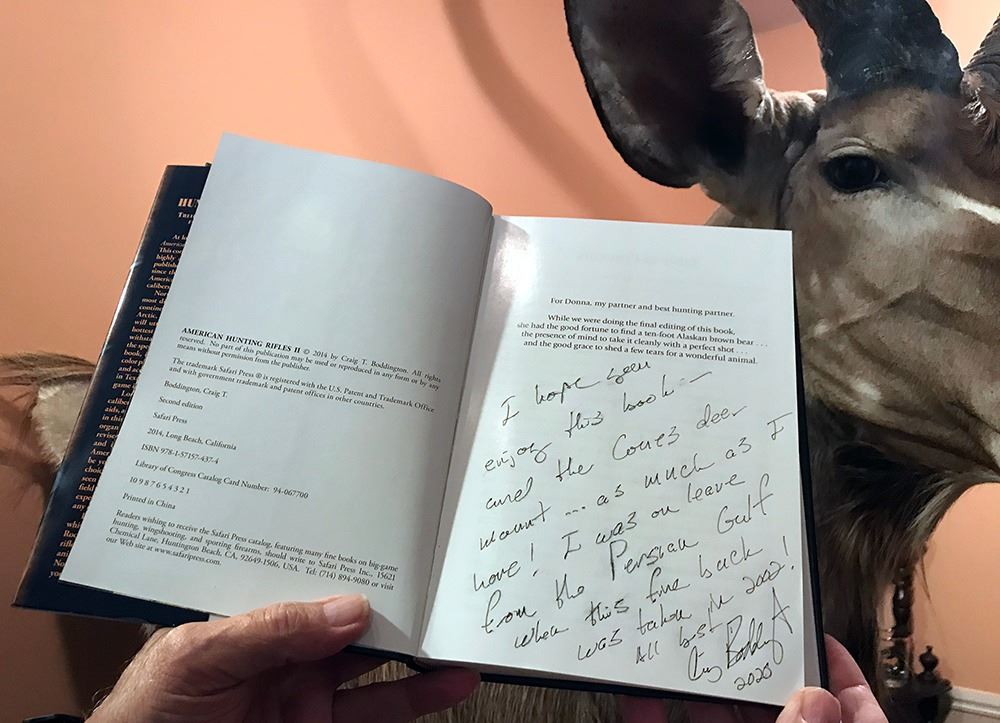 AMERICAN HUNTING RIFLES II © 2014 by Craig T. Boddington. All rights
reserved. No part of this publication may be used or reproduced in any form or by any
means without permission from the publisher.
The trademark Safari Press ® is registered with the U.S. Patent and Trademark Office
and with government trademark and patent offices in other countries.
Boddington, Craig T.
Second edition
Safari Press
2014, Long Beach, California
ISBN 978-1-57157-437-4
Library of Congress Catalog Card Number: 94-067700
10 9 8 7 6 5 4 3 2 1
Printed in China
Readers wishing to receive the Safari Press catalog, featuring many fine books on big-game
hunting, wingshooting, and sporting firearms, should write to Safari Press Inc., 15621
Chemical Lane, Huntington Beach, CA. 92649-1506, USA. Tel: (714) 894-9080 or visit
our Web site at www.safaripress.com.
For Donna, my partner and best hunting partner.
While we were doing the final editing of this book,
she had the good fortune to find a ten-foot Alaskan brown bear . . .
the presence of mind to take it cleanly with a perfect shot . . .
and the good grace to shed a few tears for a wonderful animal.
I hope
enjoy this book —
and the Coues deer
mount ... as much as I
have! I was on leave
from the Persian Gulf
when this fine buck
was taken in 2002!
All best,
Craig Boddington
2020